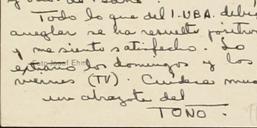 Todo lo que del I.UBA. debía
arreglar se ha resuelto positivo
y me siento satisfecho. Lo
extraño los domingos y los
viernes (TV). Cuídese mu
un abrazote del
TOÑO.